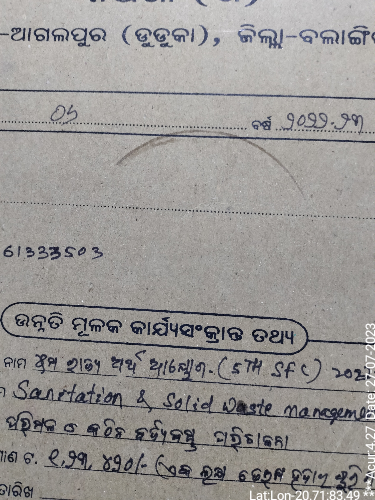 -ଆଗଲପୁର (ଡୁଡୁକା), ଜିଲ୍ଲା-ବଲାଙ୍ଗି
05 ବର୍ଷ ୨୦୨୨-୨୩
61333503
ଉନ୍ନତି ମୂଳକ କାର୍ଯ୍ୟସଂକ୍ରାନ୍ତ ତଥ୍ୟ
ନାମ ୫ମ ରାଜ୍ୟ ଅର୍ଥ ଆୟୋଗ. (5TH SFC) 202
Sanitation & Solid Waste manageme
ପରିମଳ ଓ କଠିନ ବର୍ଜ୍ୟବସ୍ତୁ ପରିଚାଳନା
ଟ. ୧,୨୩, ୪୨୦/- (ଏକ ଲକ୍ଷ ତେଇଶ ହଜାର
ତାରିଖ
Lat:Lon-20.71:83.49, **Acur:4.27, Date: 27-07-2023